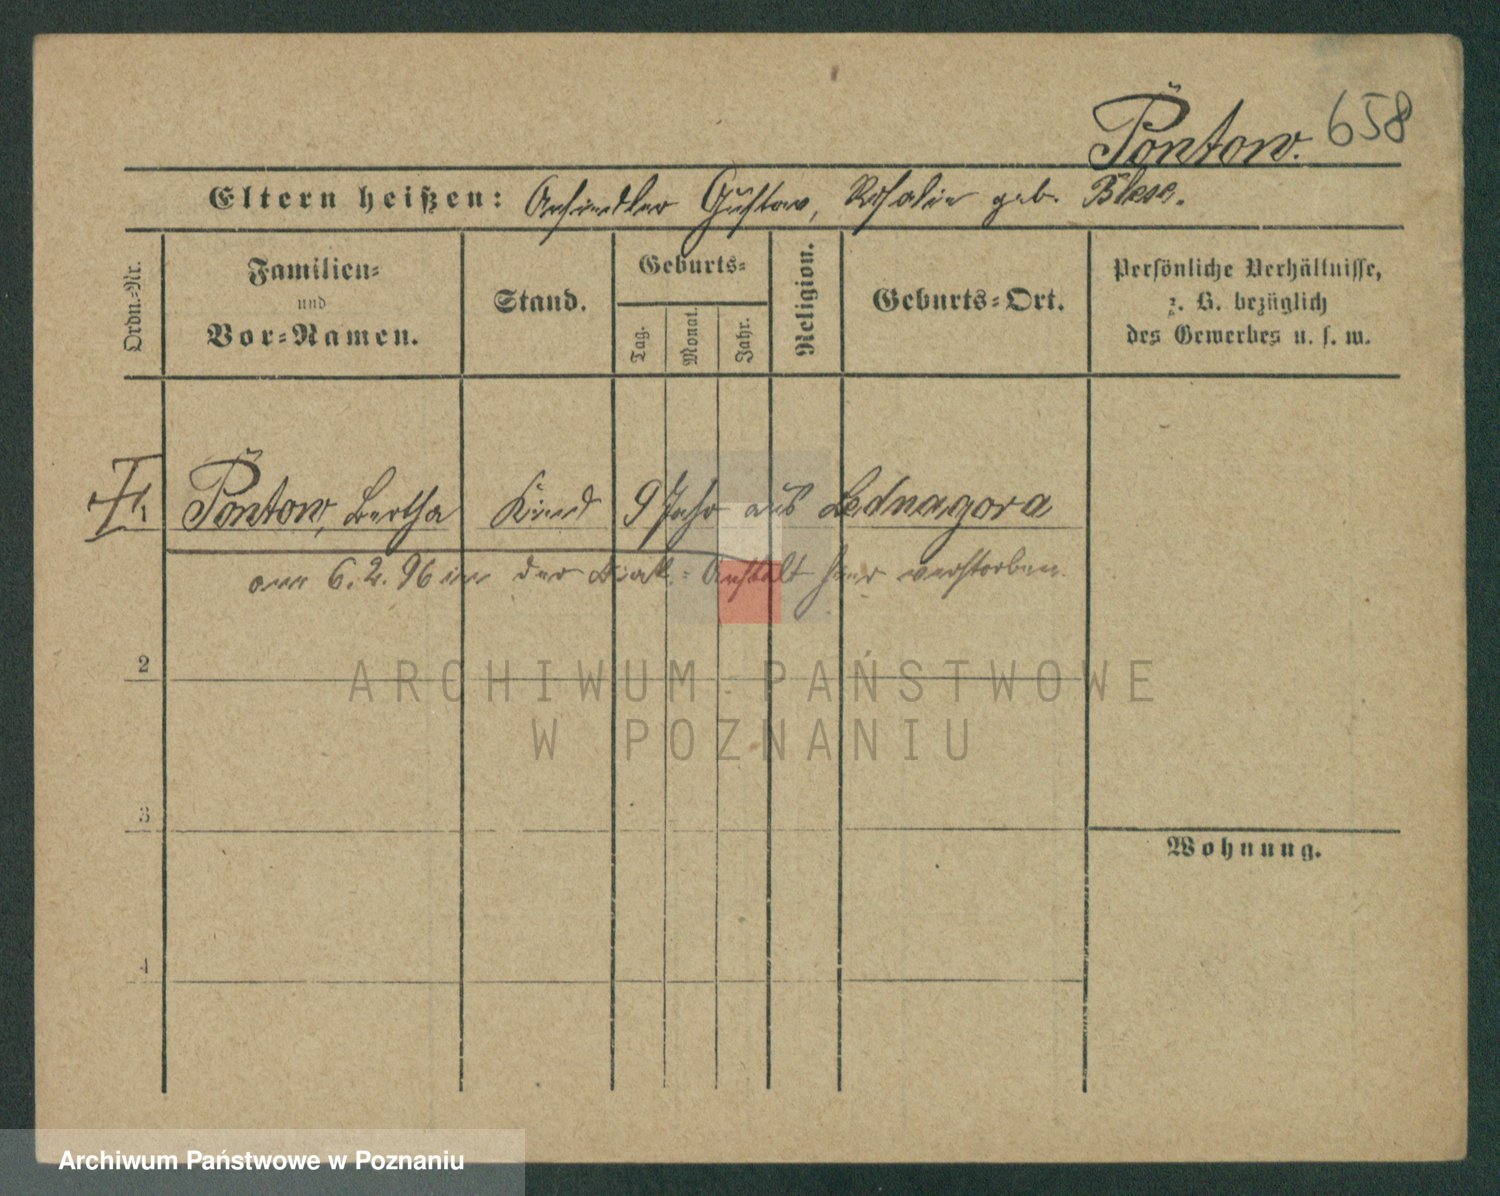 Pöntow. 658
Eltern heißen: Ansiedler Gustav, Rosalie geb. Blese.
Ordn.=Nr.
Familien=
und
Vor=Namen.
Stand.
Geburts=
Tag.
Monat.
Jahr.
Religion.
Geburts=Ort.
Persönliche Verhältnisse,
z. B. bezüglich
des Gewerbes u. s. w.
1 Pöntow, Bertha Kind 9 Jahr aus Lednagora
am 6.2.96 in der Diak.=Anstalt hier verstorben.
2
ARCHIWUM PAŃSTWOWE
W POZNANIU
3
Wohnung.
4
Archiwum Państwowe w Poznaniu